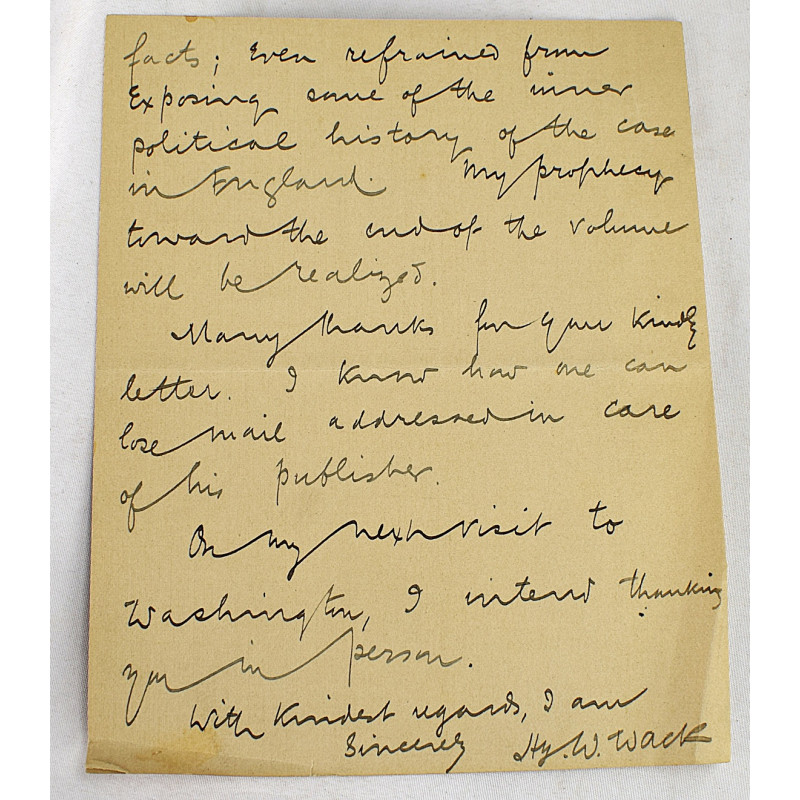 facts; Even refrained from
Exposing some of the inner
political history of the case
in England. My prophecy
toward the end of the volume
will be realized.
Many thanks for your kindly
letter. I know how one can
lose mail addressed in care
of his publisher.
On my next visit to
Washington, I intend thanking
you in person.
With kindest regards, I am
Sincerely Hy. W. Wack